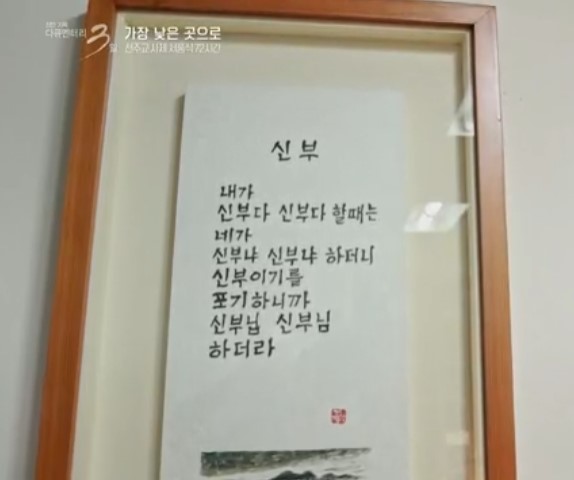 다큐멘터리 3일
가장 낮은 곳으로
천주교 사제 서품식 72시간
신부
내가
신부다 신부다 할때는
네가
신부냐 신부냐 하더니
신부이기를
포기하니까
신부님 신부님
하더라